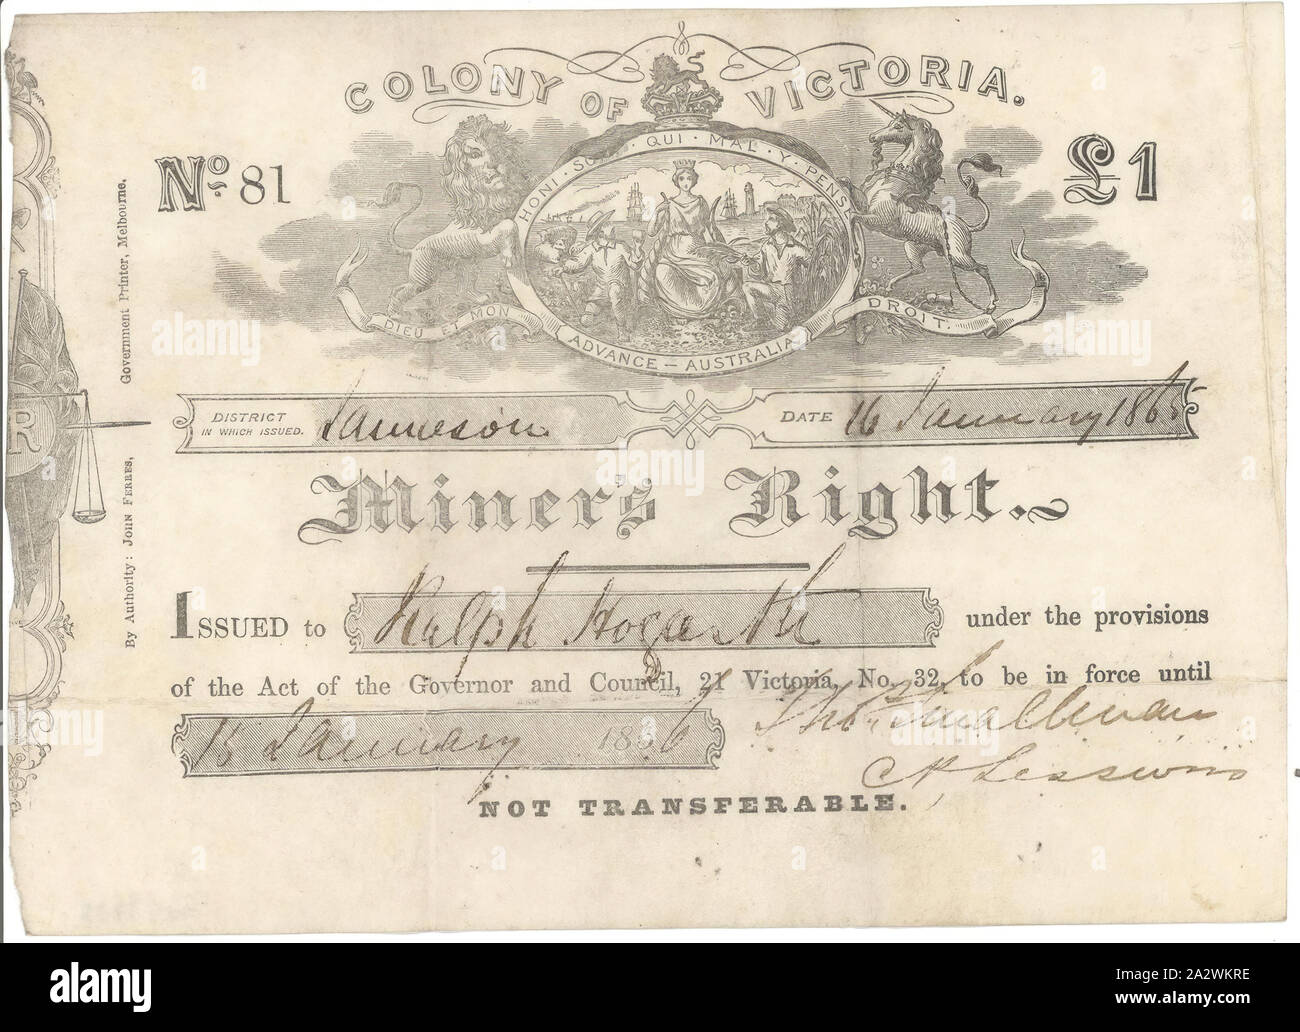 COLONY OF VICTORIA.
No. 81
£1
HONI · SOIT · QUI · MAL · Y · PENSE
DIEU ET MON DROIT.
ADVANCE — AUSTRALIA
DISTRICT IN WHICH ISSUED. Jamieson
DATE 16 January 1865
Miner's Right.
ISSUED to Ralph Hogarth under the provisions
of the Act of the Governor and Council, 21 Victoria, No. 32, to be in force until
15 January 1866
NOT TRANSFERABLE.
By Authority: JOHN FERRES, Government Printer, Melbourne.
R
alamy
Image ID: 2A2WKRE
www.alamy.com